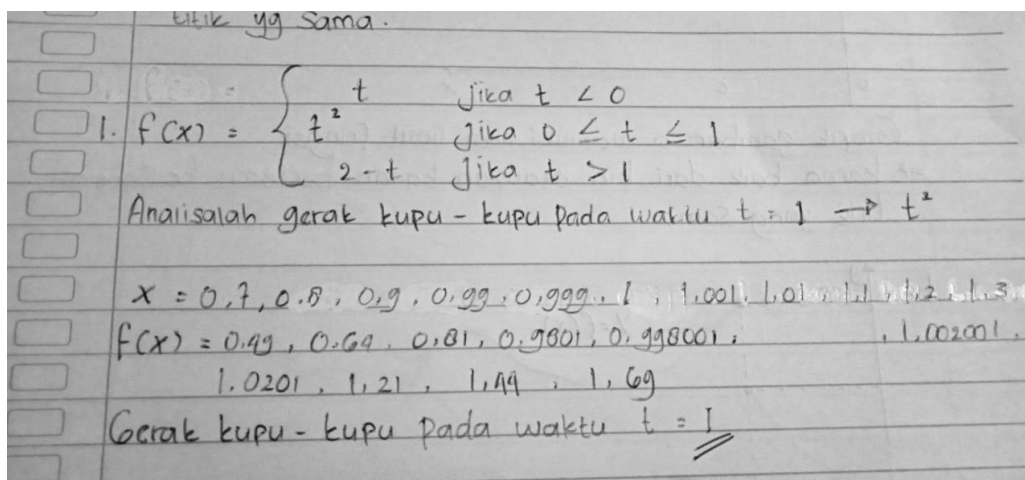 titik yg sama.
t jika t < 0
1. f(x) = { t² jika 0 ≤ t ≤ 1
2-t jika t > 1
Analisalah gerak kupu-kupu pada waktu t = 1 → t²
x = 0,7, 0.8, 0,9, 0,99, 0,999, 1, 1,001, 1,01, 1,1, 1,2, 1,3
f(x) = 0.49, 0.64, 0,81, 0,9801, 0.998001, , 1.002001,
1.0201, 1,21, 1,44, 1,69
Gerak kupu-kupu pada waktu t = 1